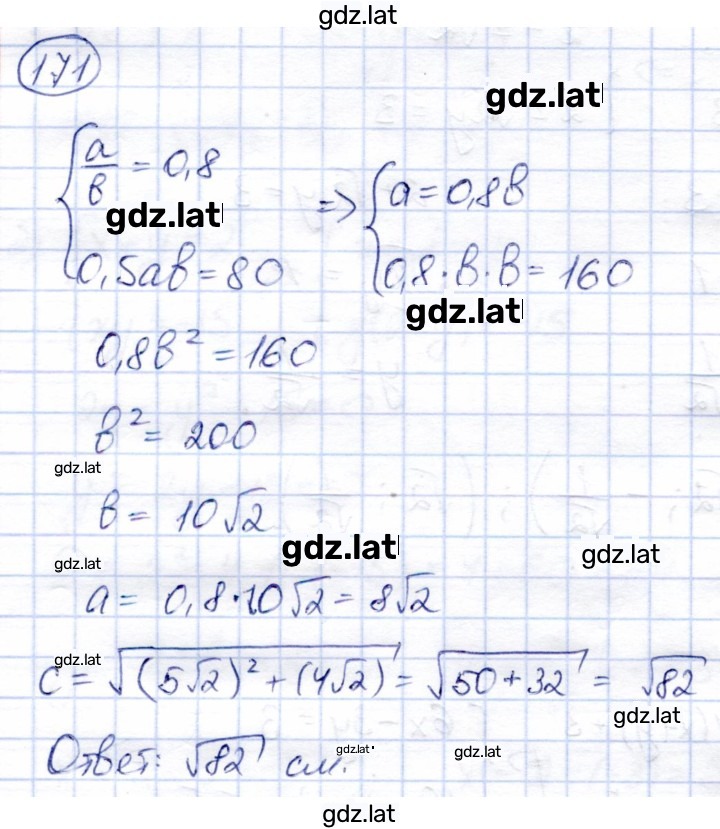 gdz.lat
171
gdz.lat
a/b = 0,8
gdz.lat
0,5ab = 80
=> a = 0,8b
0,8·b·b = 160
gdz.lat
0,8b² = 160
b² = 200
gdz.lat
b = 10√2
gdz.lat
gdz.lat
gdz.lat
a = 0,8·10√2 = 8√2
gdz.lat
c = √(5√2)² + (4√2) = √50 + 32 = √82
gdz.lat
Ответ: √82 см.
gdz.lat
gdz.lat
gdz.lat